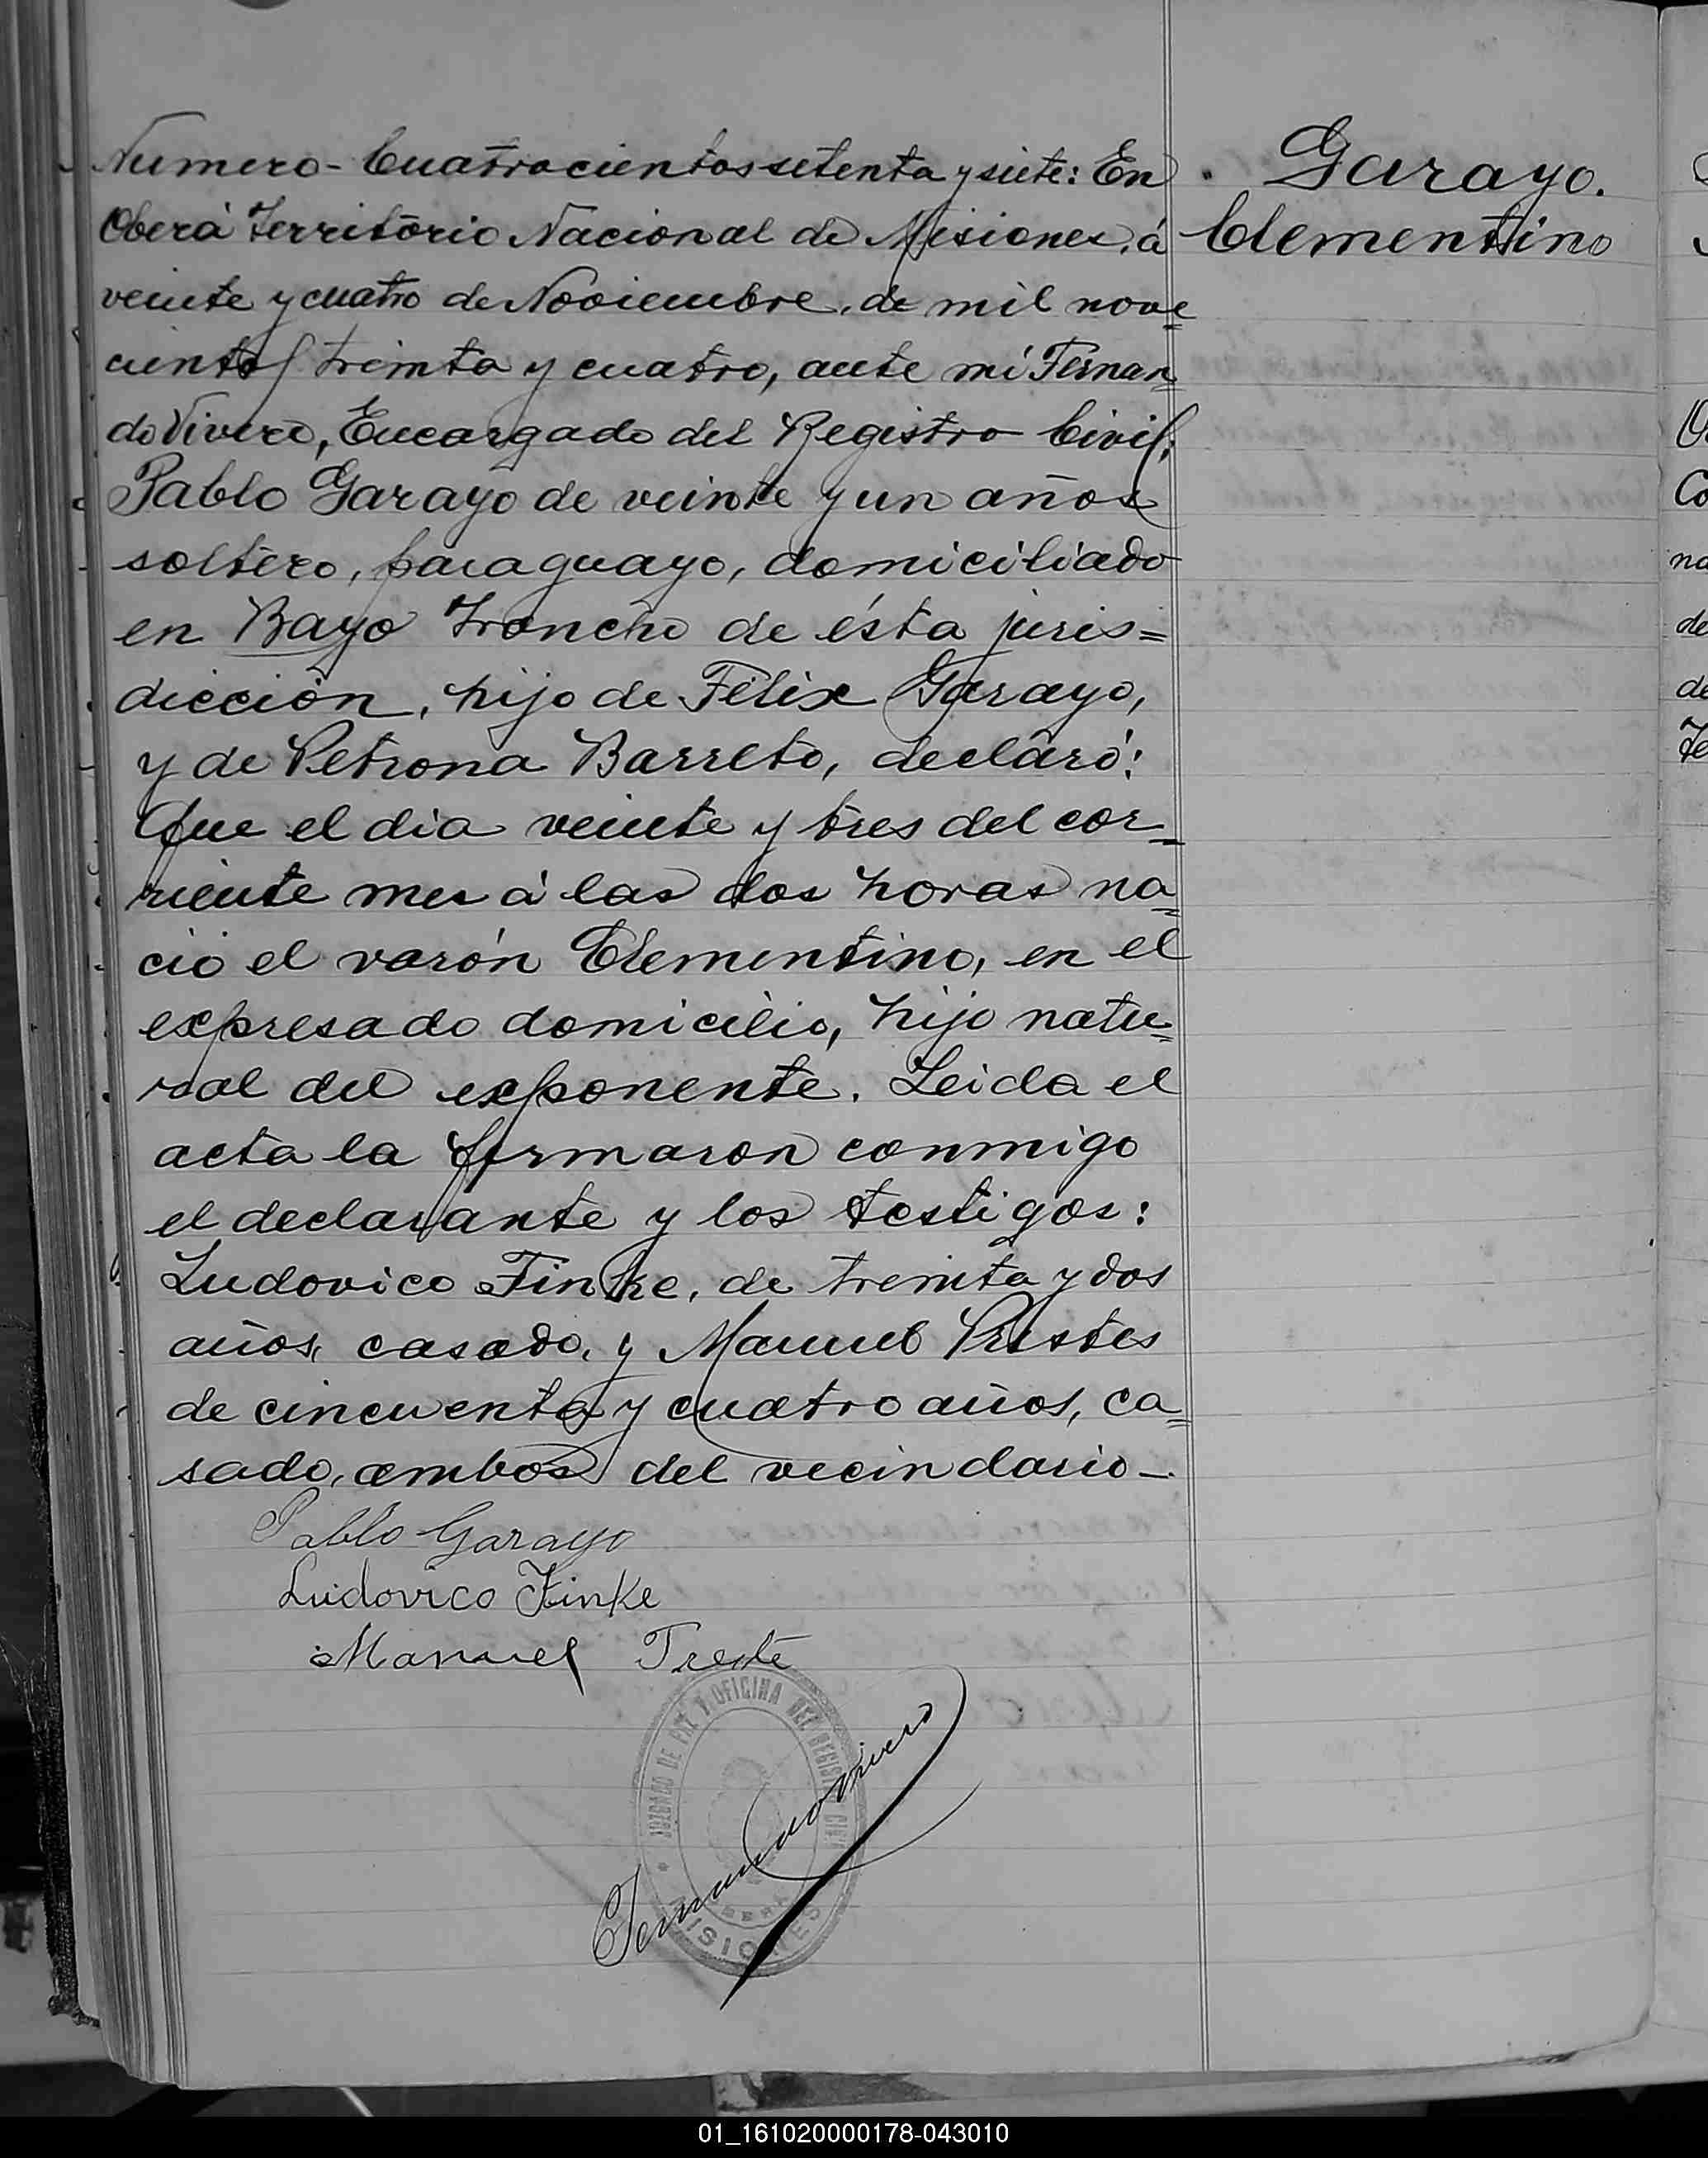 Numero - Cuatrocientos setenta y siete: En
Oberá Territorio Nacional de Misiones, á
veinte y cuatro de Noviembre, de mil nove
cientos treinta y cuatro, ante mí Fernan
do Vivero, Encargado del Registro Civil;
Pablo Garayo de veinte y un años
soltero, paraguayo, domiciliado
en Bayo Troncho de ésta juris=
dicción, hijo de Félix Garayo,
y de Petrona Barreto, declaró:
Que el dia veinte y tres del cor=
riente mes á las dos horas na=
ció el varón Clementino, en el
expresado domicilio, hijo natu=
ral del exponente. Leida el
acta la firmaron conmigo
el declarante y los testigos:
Ludovico Finke, de treinta y dos
años, casado, y Manuel Prestes
de cincuenta y cuatro años, ca=
sado, ambos del vecindario-.
Pablo Garayo
Ludovico Finke
Manuel
Fernando Vivero
JUZGADO DE PAZ Y OFICINA DEL REGISTRO CIVIL
OBERÁ
MISIONES
Garayo.
Clementino
01_161020000178-043010